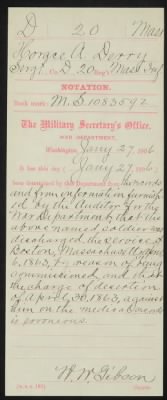 D 20 Mass
Horace A. Derry
Serg't, Co. D, 20 Reg't Mass. Inf.
NOTATION.
Book mark: M.S. 1083592
The Military Secretary's Office,
WAR DEPARTMENT,
Washington, Jany 27, 1906
It has this day (Jany 27, 1906)
been determined by this Department from the records
and from information furnish-
ed by the Auditor for the
War Department, that the
above named soldier was
discharged the service at
Boston, Massachusetts,
6, 1863, by reason of being
commissioned and that
the charge of desertion
of April 30, 1863, against
him on the medical records
is erroneous.
W. W. Gibson